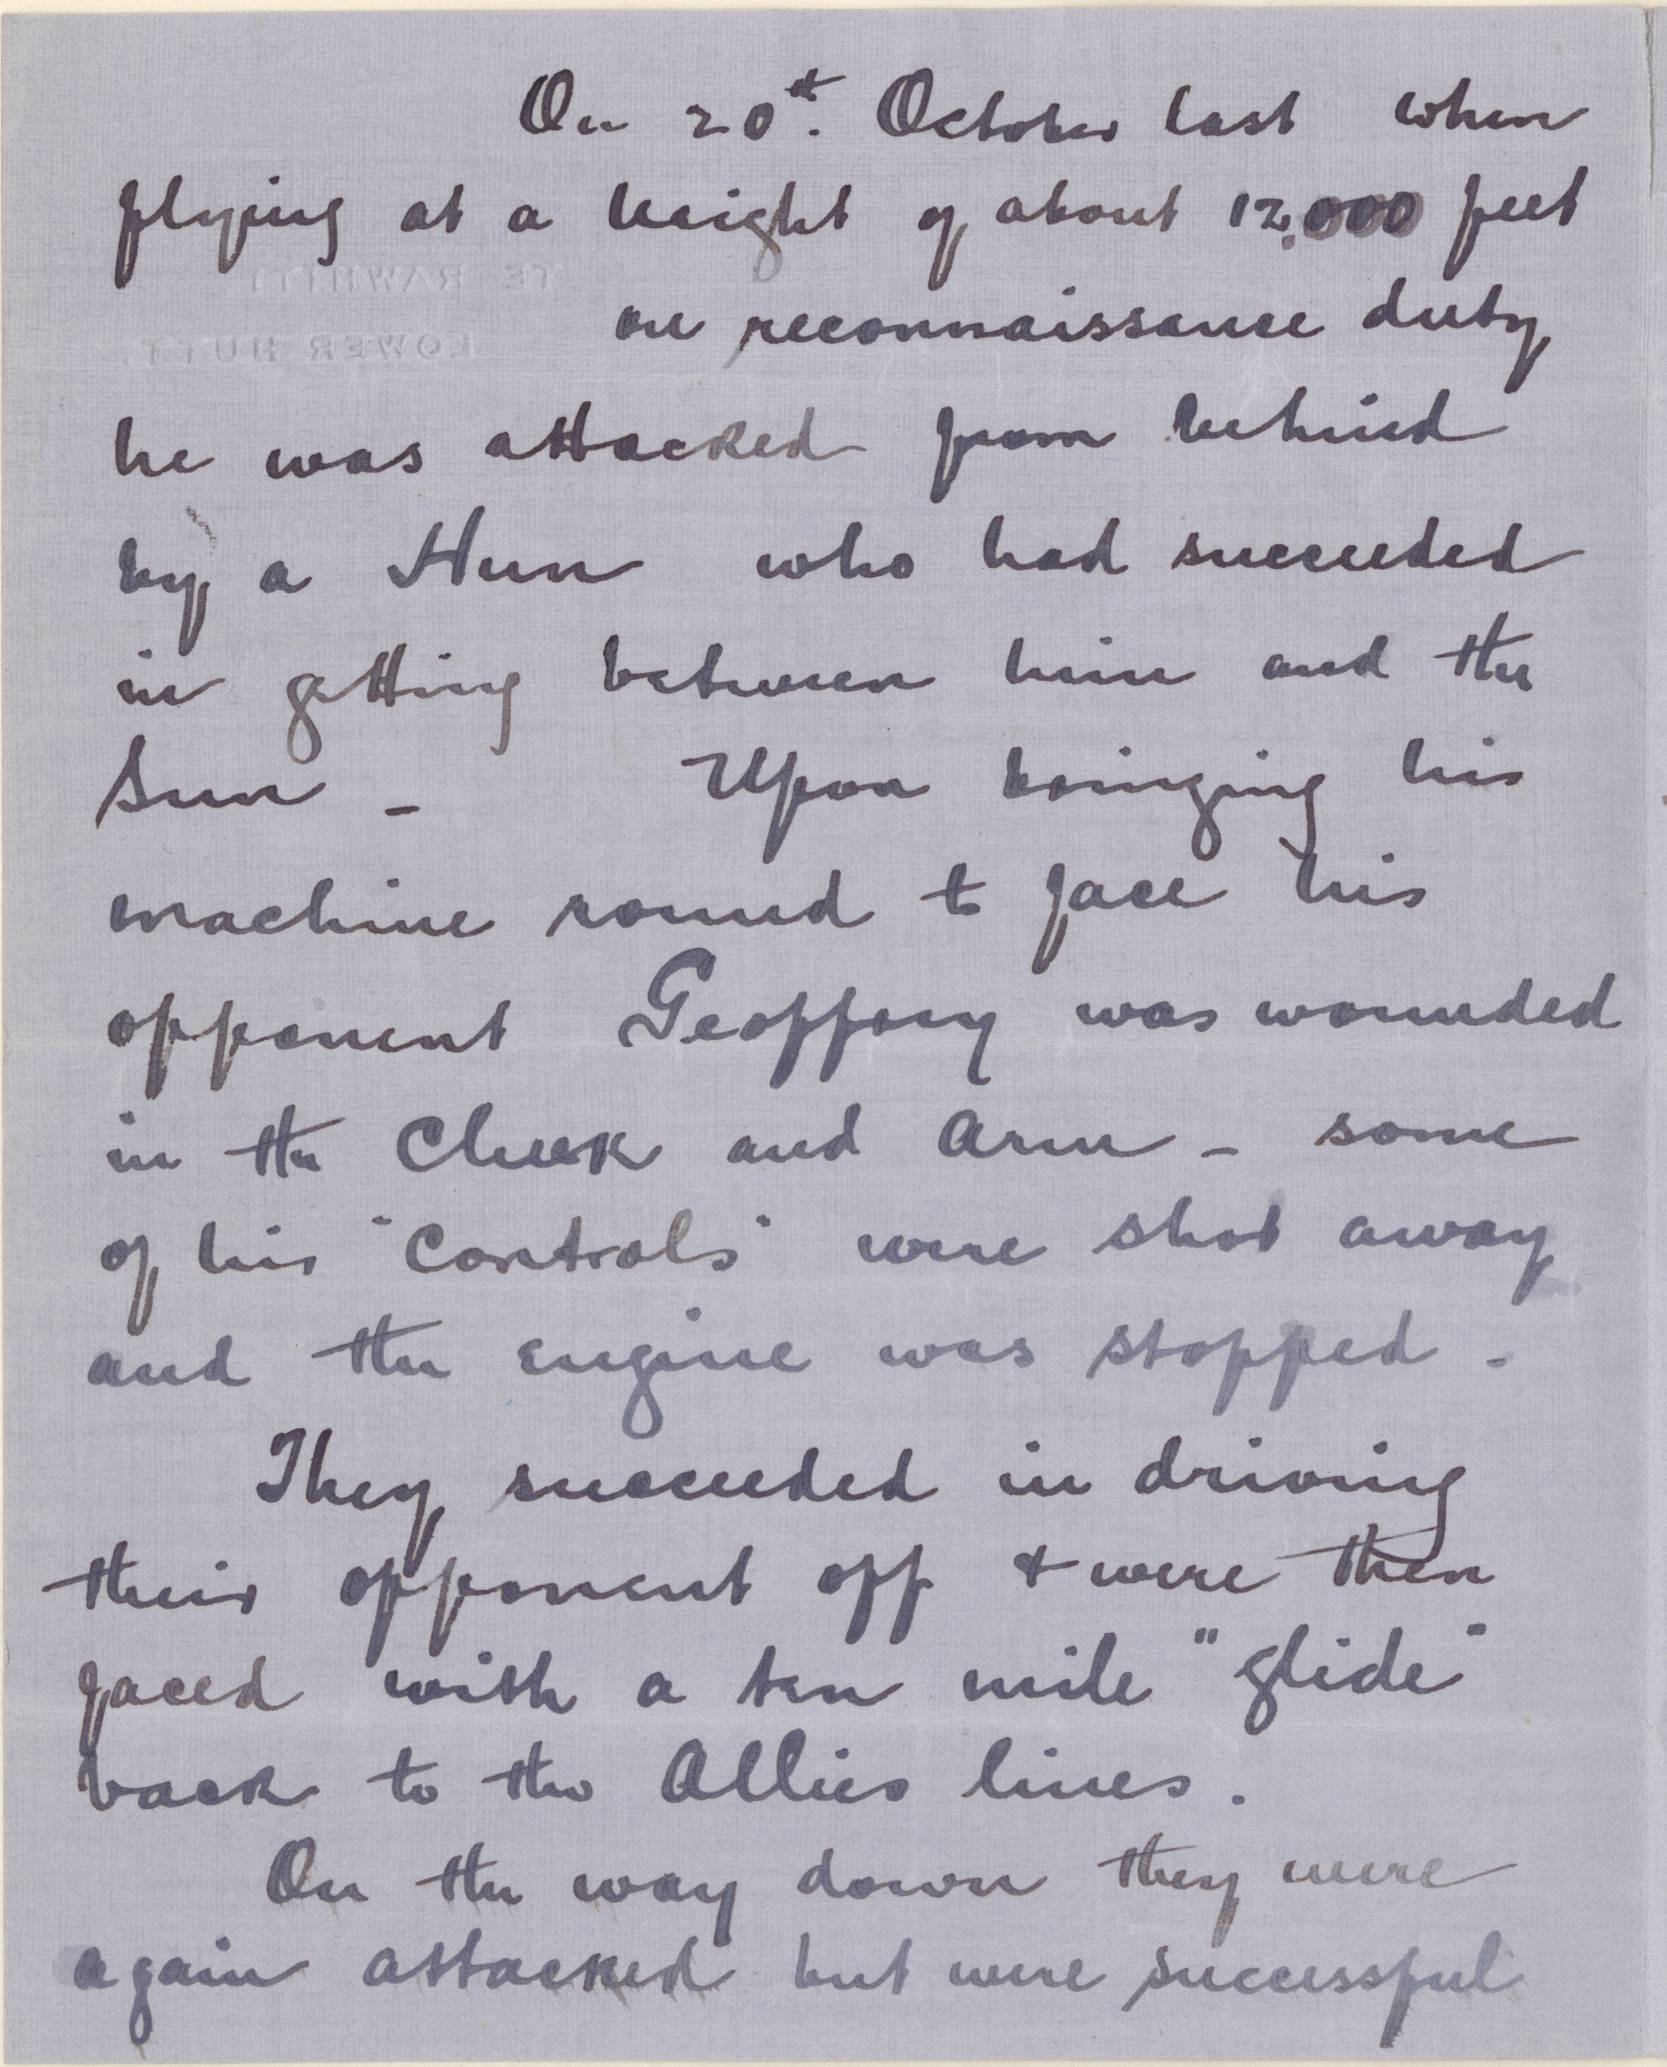 On 20th. October last when
flying at a height of about 12,000 feet
TE RAWHITI
on reconnaissance duty
LOWER HUTT.
he was attacked from behind
by a Hun who had succeeded
in getting between him and the
Sun _ Upon bringing his
machine round to face his
opponent Geoffory was wounded
in the Cheek and Arm _ some
of his "Controls" were shot away
and the engine was stopped -
They succeeded in driving
their opponent off & were then
faced with a ten mile "glide"
back to the Allies lines.
On the way down they were
again attacked but were successful